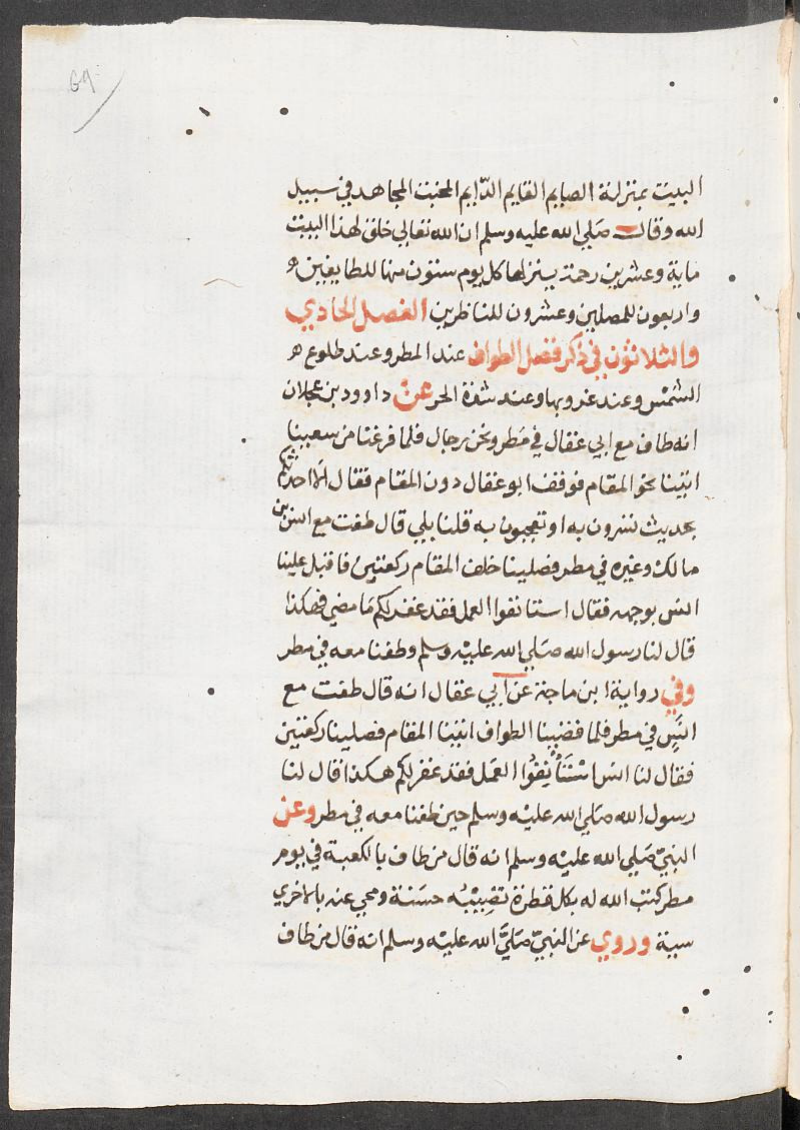 69
البيت بمنزلة الصايم القايم الدّايم المخبت المجاهد في سبيل
الله وقال صَلي الله عليه وسلم ان الله تعالي خلق لهذا البيت
ماية وعشرين رحمة ينزلها كل يوم ستون منها للطايفين و
واربعون للمصلين وعشرون للناظرين الفصل الحادي
والثلاثون في ذكر فضل الطواف عند المطر وعند طلوع
الشمس وعند غروبها وعند شدة الحر عن داوود بن عجلان
انه طاف مع ابي عقال في مَطر ونحن رجال فلما فرغنا من سعينا
اتينا نحو المقام فوقف ابو عقال دون المقام فقال الا احدثكم
بحديث تسرون به او تعجبون به قلنا بلي قال طفت مع انس بن
مالك وغيره في مطر فصلينا خلف المقام ركعتين فاقبل علينا
انس بوجهه فقال استانفوا العمل فقد غفر لكم مَا مضي فهكذا
قال لنا رسول الله صَلي الله عليه وسلم وطفنا معه في مطر
وفي رواية ابن ماجة عن ابي عقال انه قال طفت مع
انَسٍ في مطر فلما قضينا الطواف اتينا المقام فصلينا ركعتين
فقال لنا انس اسْتَأنِفُوا العَمل فقد غفر لكم هكذا قال لنا
رسول الله صَلي الله عليه وسلم حين طفنا معه في مطر وعن
النبيّ صَلي الله عليه وسلم انه قال من طاف بالكعبة في يوم
مطر كتب الله له بكل قطرة تصِيبُه حسَنة ومحي عنه بالاخري
سيية وروي عن النبيّ صَليَّ الله عليه وسلم انه قال من طاف